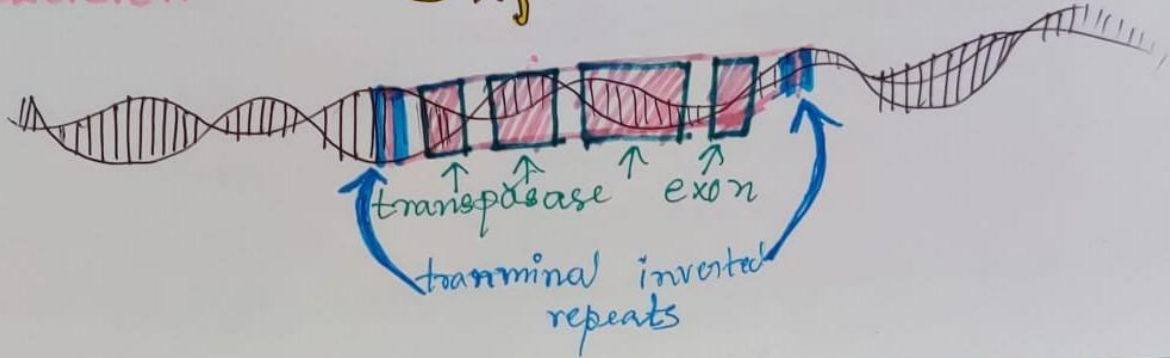 transposase exon
tranminal inverted
repeats